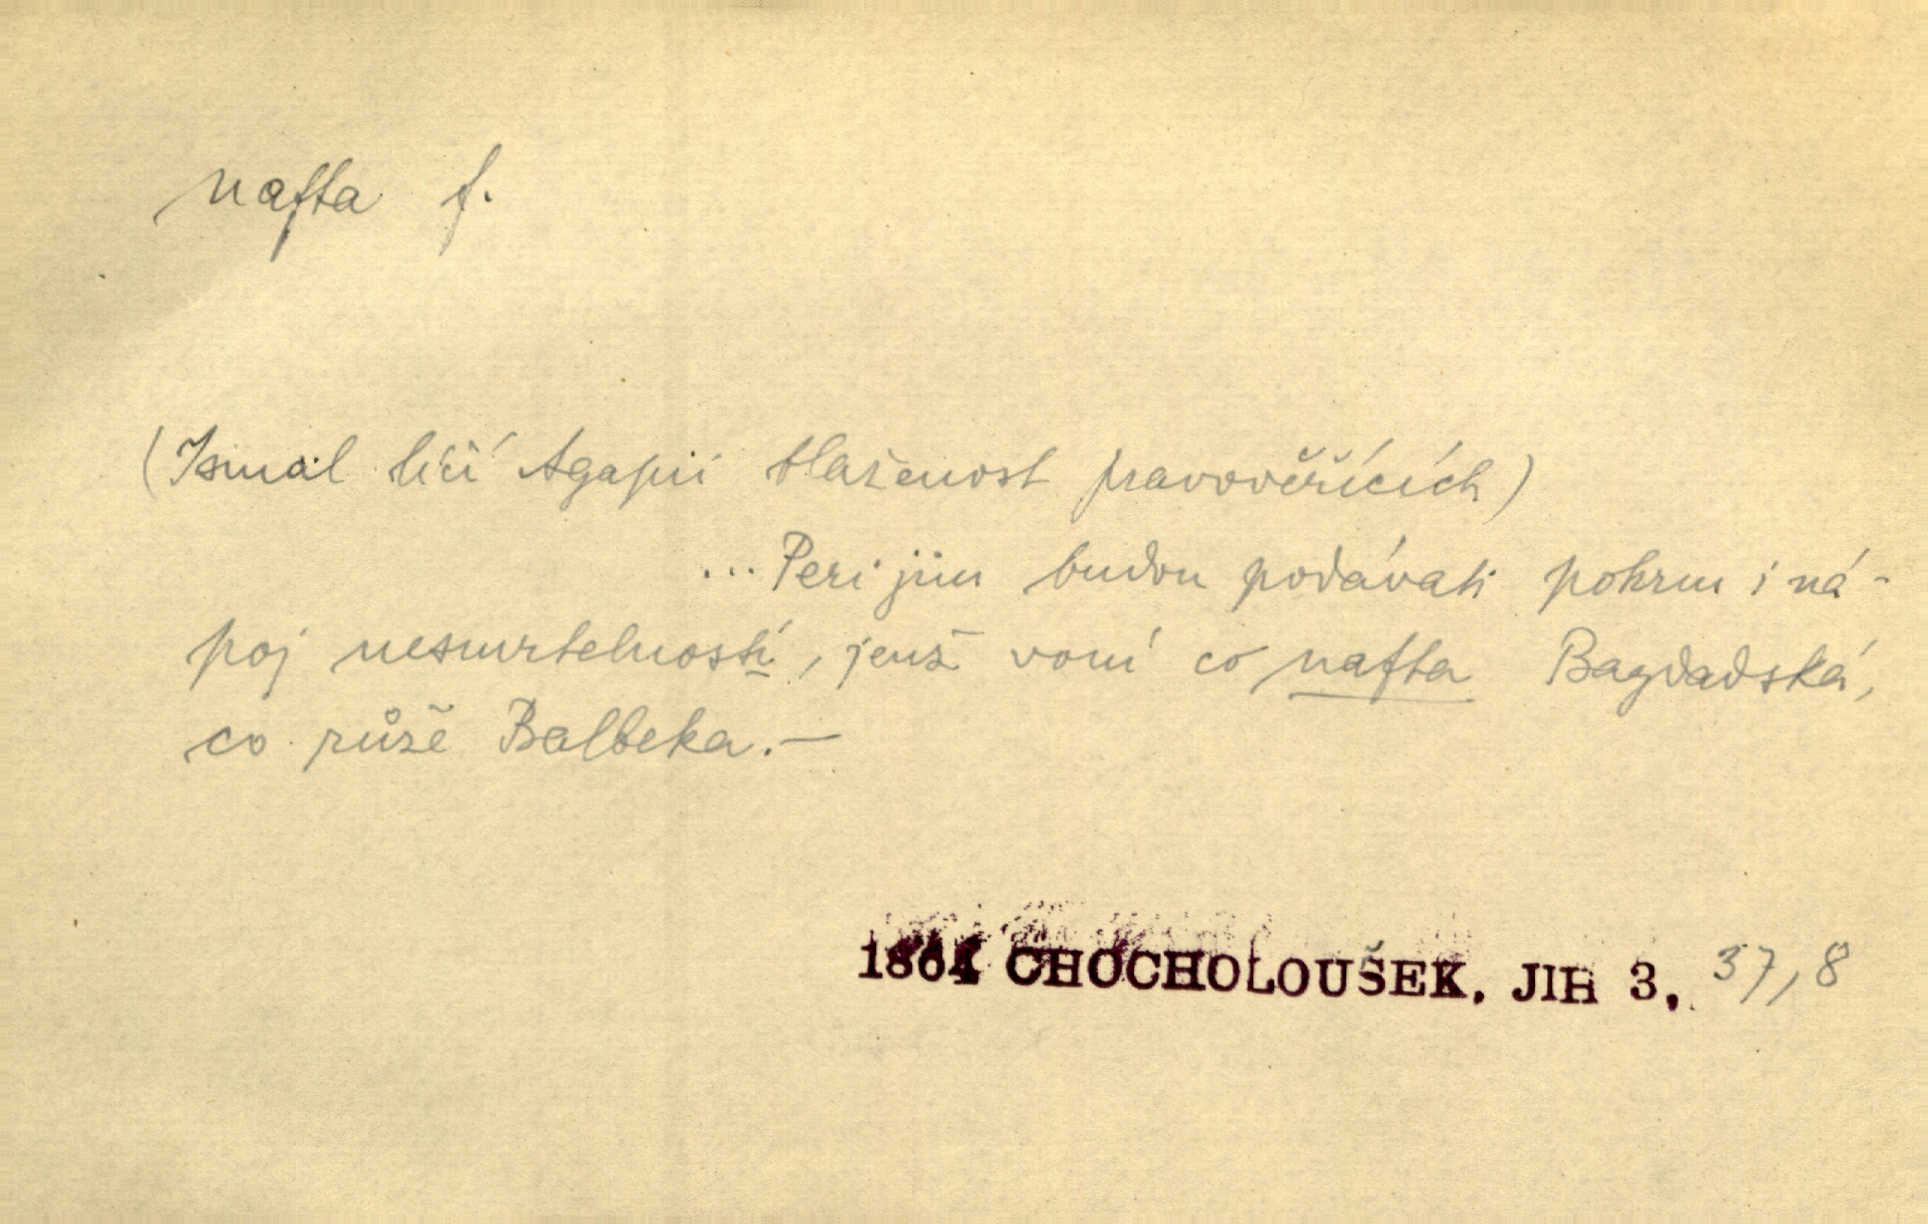 nafta f.
(Ismal líčí Agapii blaženost pravověřících)
... Peri jim budou podávati pokrm i ná-
poj nesmrtelností, jenž voní co nafta Bagdadská,
co růže Balbeka. —
1864 CHOCHOLOUŠEK. JIH 3, 37,8